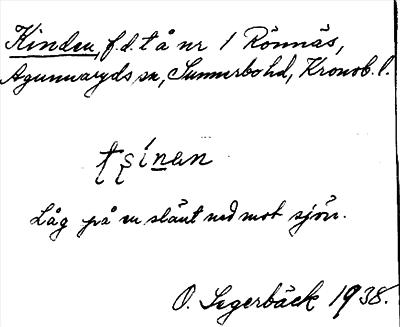 Kinden, f.d. t å nr 1 Rönnäs,
Agunnaryds sn, Sunnerbo hd, Kronob. l.
tsinan
Låg på en slänt ned mot sjön.
O. Segerbäck 1938.